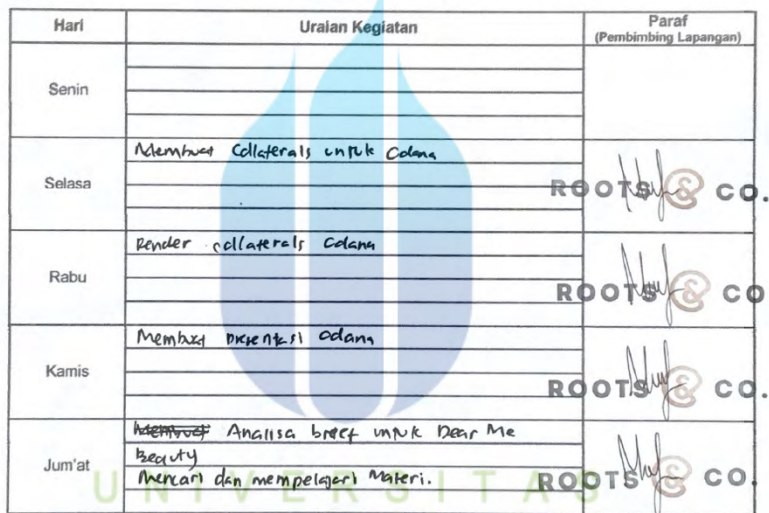 Hari Uraian Kegiatan Paraf
(Pembimbing Lapangan)
Senin
Selasa
Membuat Collaterals untuk Odana
ROOTS & CO.
Rabu
Render collaterals Odana
ROOTS & CO
Kamis
Membuat presentasi Odana
ROOTS & CO.
Jum'at
Analisa brief untuk Dear Me
Beauty
Mencari dan mempelajari Materi.
ROOTS & CO.
UNIVERSITAS